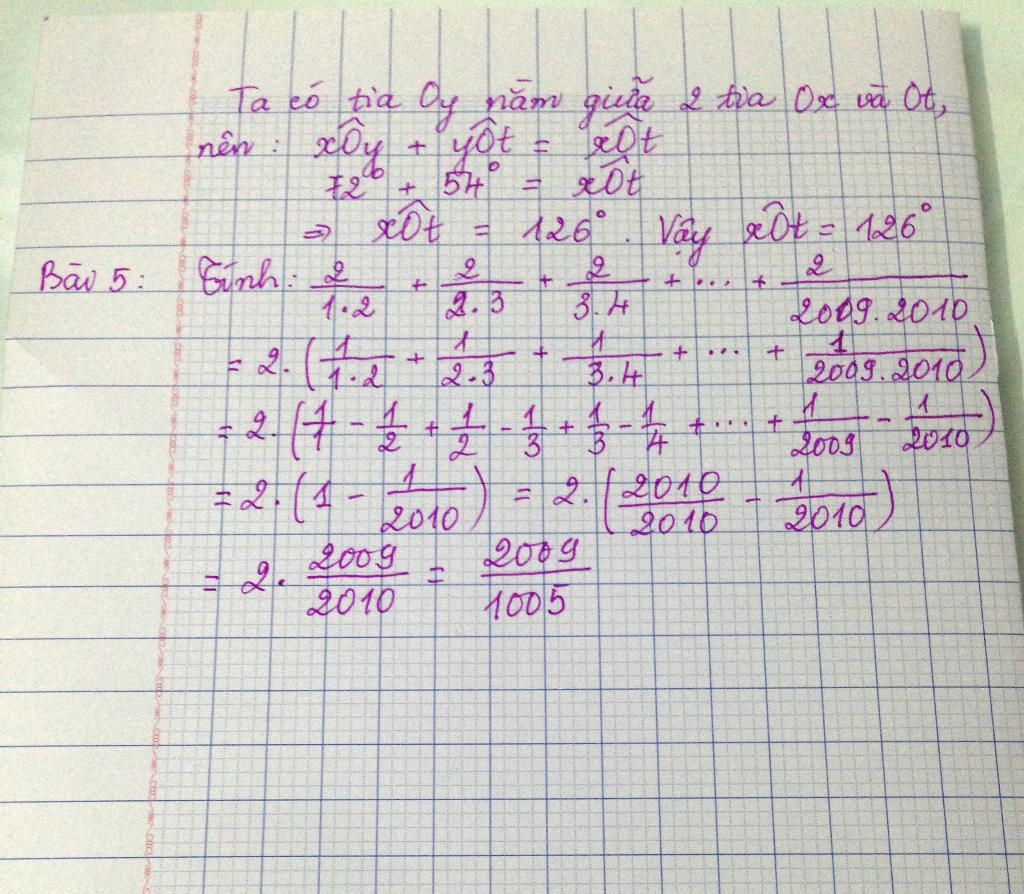 Ta có tia Oy nằm giữa 2 tia Ox và Ot,
nên : xÔy + yÔt = xÔt
72° + 54° = xÔt
⇒ xÔt = 126°. Vậy xÔt = 126°
Bài 5 : Tính : 2/1.2 + 2/2.3 + 2/3.4 + ... + 2/2009.2010
= 2.(1/1.2 + 1/2.3 + 1/3.4 + ... + 1/2009.2010)
= 2.(1/1 - 1/2 + 1/2 - 1/3 + 1/3 - 1/4 + ... + 1/2009 - 1/2010)
= 2.(1 - 1/2010) = 2.(2010/2010 - 1/2010)
= 2. 2009/2010 = 2009/1005